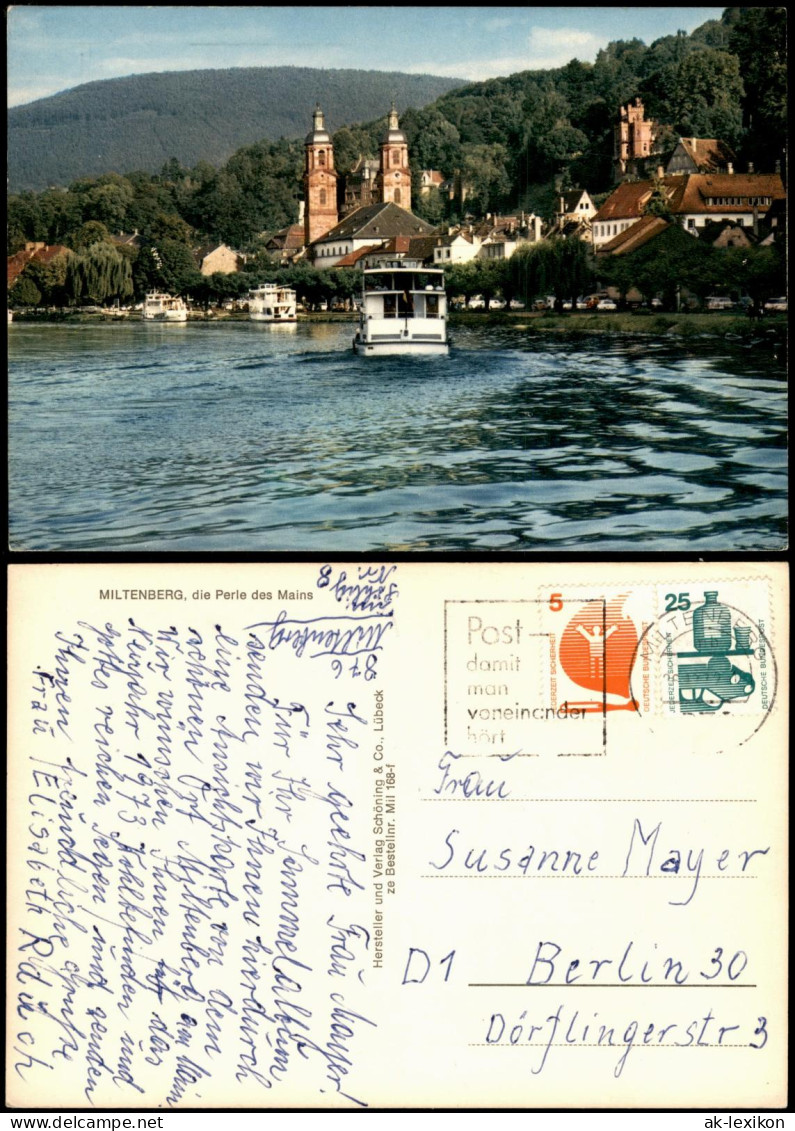 MILTENBERG, die Perle des Mains
876
Miltenberg
Nr. 8
Sehr geehrte Frau Mayer!
Für Ihr Sammelalbum
senden wir Ihnen hierdurch
eine Ansichtskarte von dem
schönen Ort Miltenberg am Main
Wir wünschen Ihnen für das
Neujahr 1973 Wohlbefinden und
Gottes reichen Segen und senden
Ihnen freundliche Grüße
Frau Elisabeth
Hersteller und Verlag Schöning & Co., Lübeck
ze Bestellnr. Mil 168-f
Post –
damit
man
voneinander
hört
5
JEDERZEIT SICHERHEIT
DEUTSCHE BUNDESPOST
25
JEDERZEIT SICHERHEIT
DEUTSCHE BUNDESPOST
MILTENBERG
Frau
Susanne Mayer
D1 Berlin 30
Dörflingerstr 3
www.ak-ansichtskarten.de
ak-lexikon